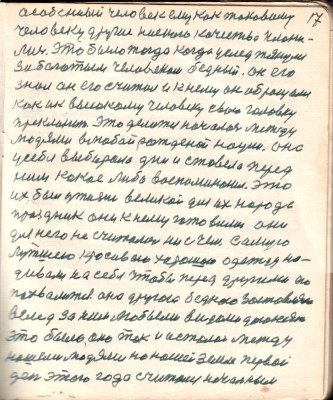 17
особенный человек ему как таковому
человеку другие низкого качества клани-
лись. Это было тогда когда услед тянулся
за богатым человеком бедный. он его
знал он его считал и к нему он обращался
как и к высокому человеку свою головку
преклонить. Это делать началось между
людями в любой рожденой нации. она
у себя выбирала дни и ставела перед
ними какое либо воспоминания. Это
их был для их народа
праздник они к нему готовились они
для него не считались ни с чем самую
лутшею красивою хорошею одежду на-
девали на себя чтобы перед другими по
похвалится. она другого бедного заставляла
вслед за ней
это было, оно так и осталось между
нашими людями на нашей земле первой
день этого года считали начальным